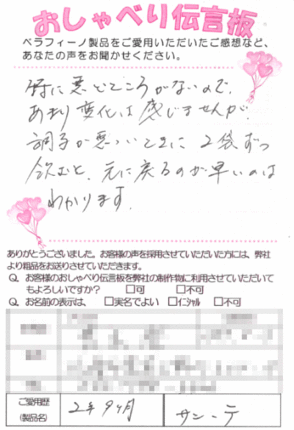 おしゃべり伝言板
ベラフィーノ製品をご愛用いただいたご感想など、
あなたの声をお聞かせください。
特に悪いところがないので、
あまり変化は感じませんが、
調子が悪いときに2袋ずつ
飲むと、元に戻るのが早いのは
わかります。
ありがとうございました。お客様の声を採用させていただいた方には、弊社
より粗品をお送りさせていただきます。
Q. お客様のおしゃべり伝言板を弊社の制作物に利用させていただいて
もよろしいですか? □可 □不可
Q. お名前の表示は □実名でよい □イニシャル □不可
ご愛用歴
(製品名)
2年9ヶ月
サンーテ